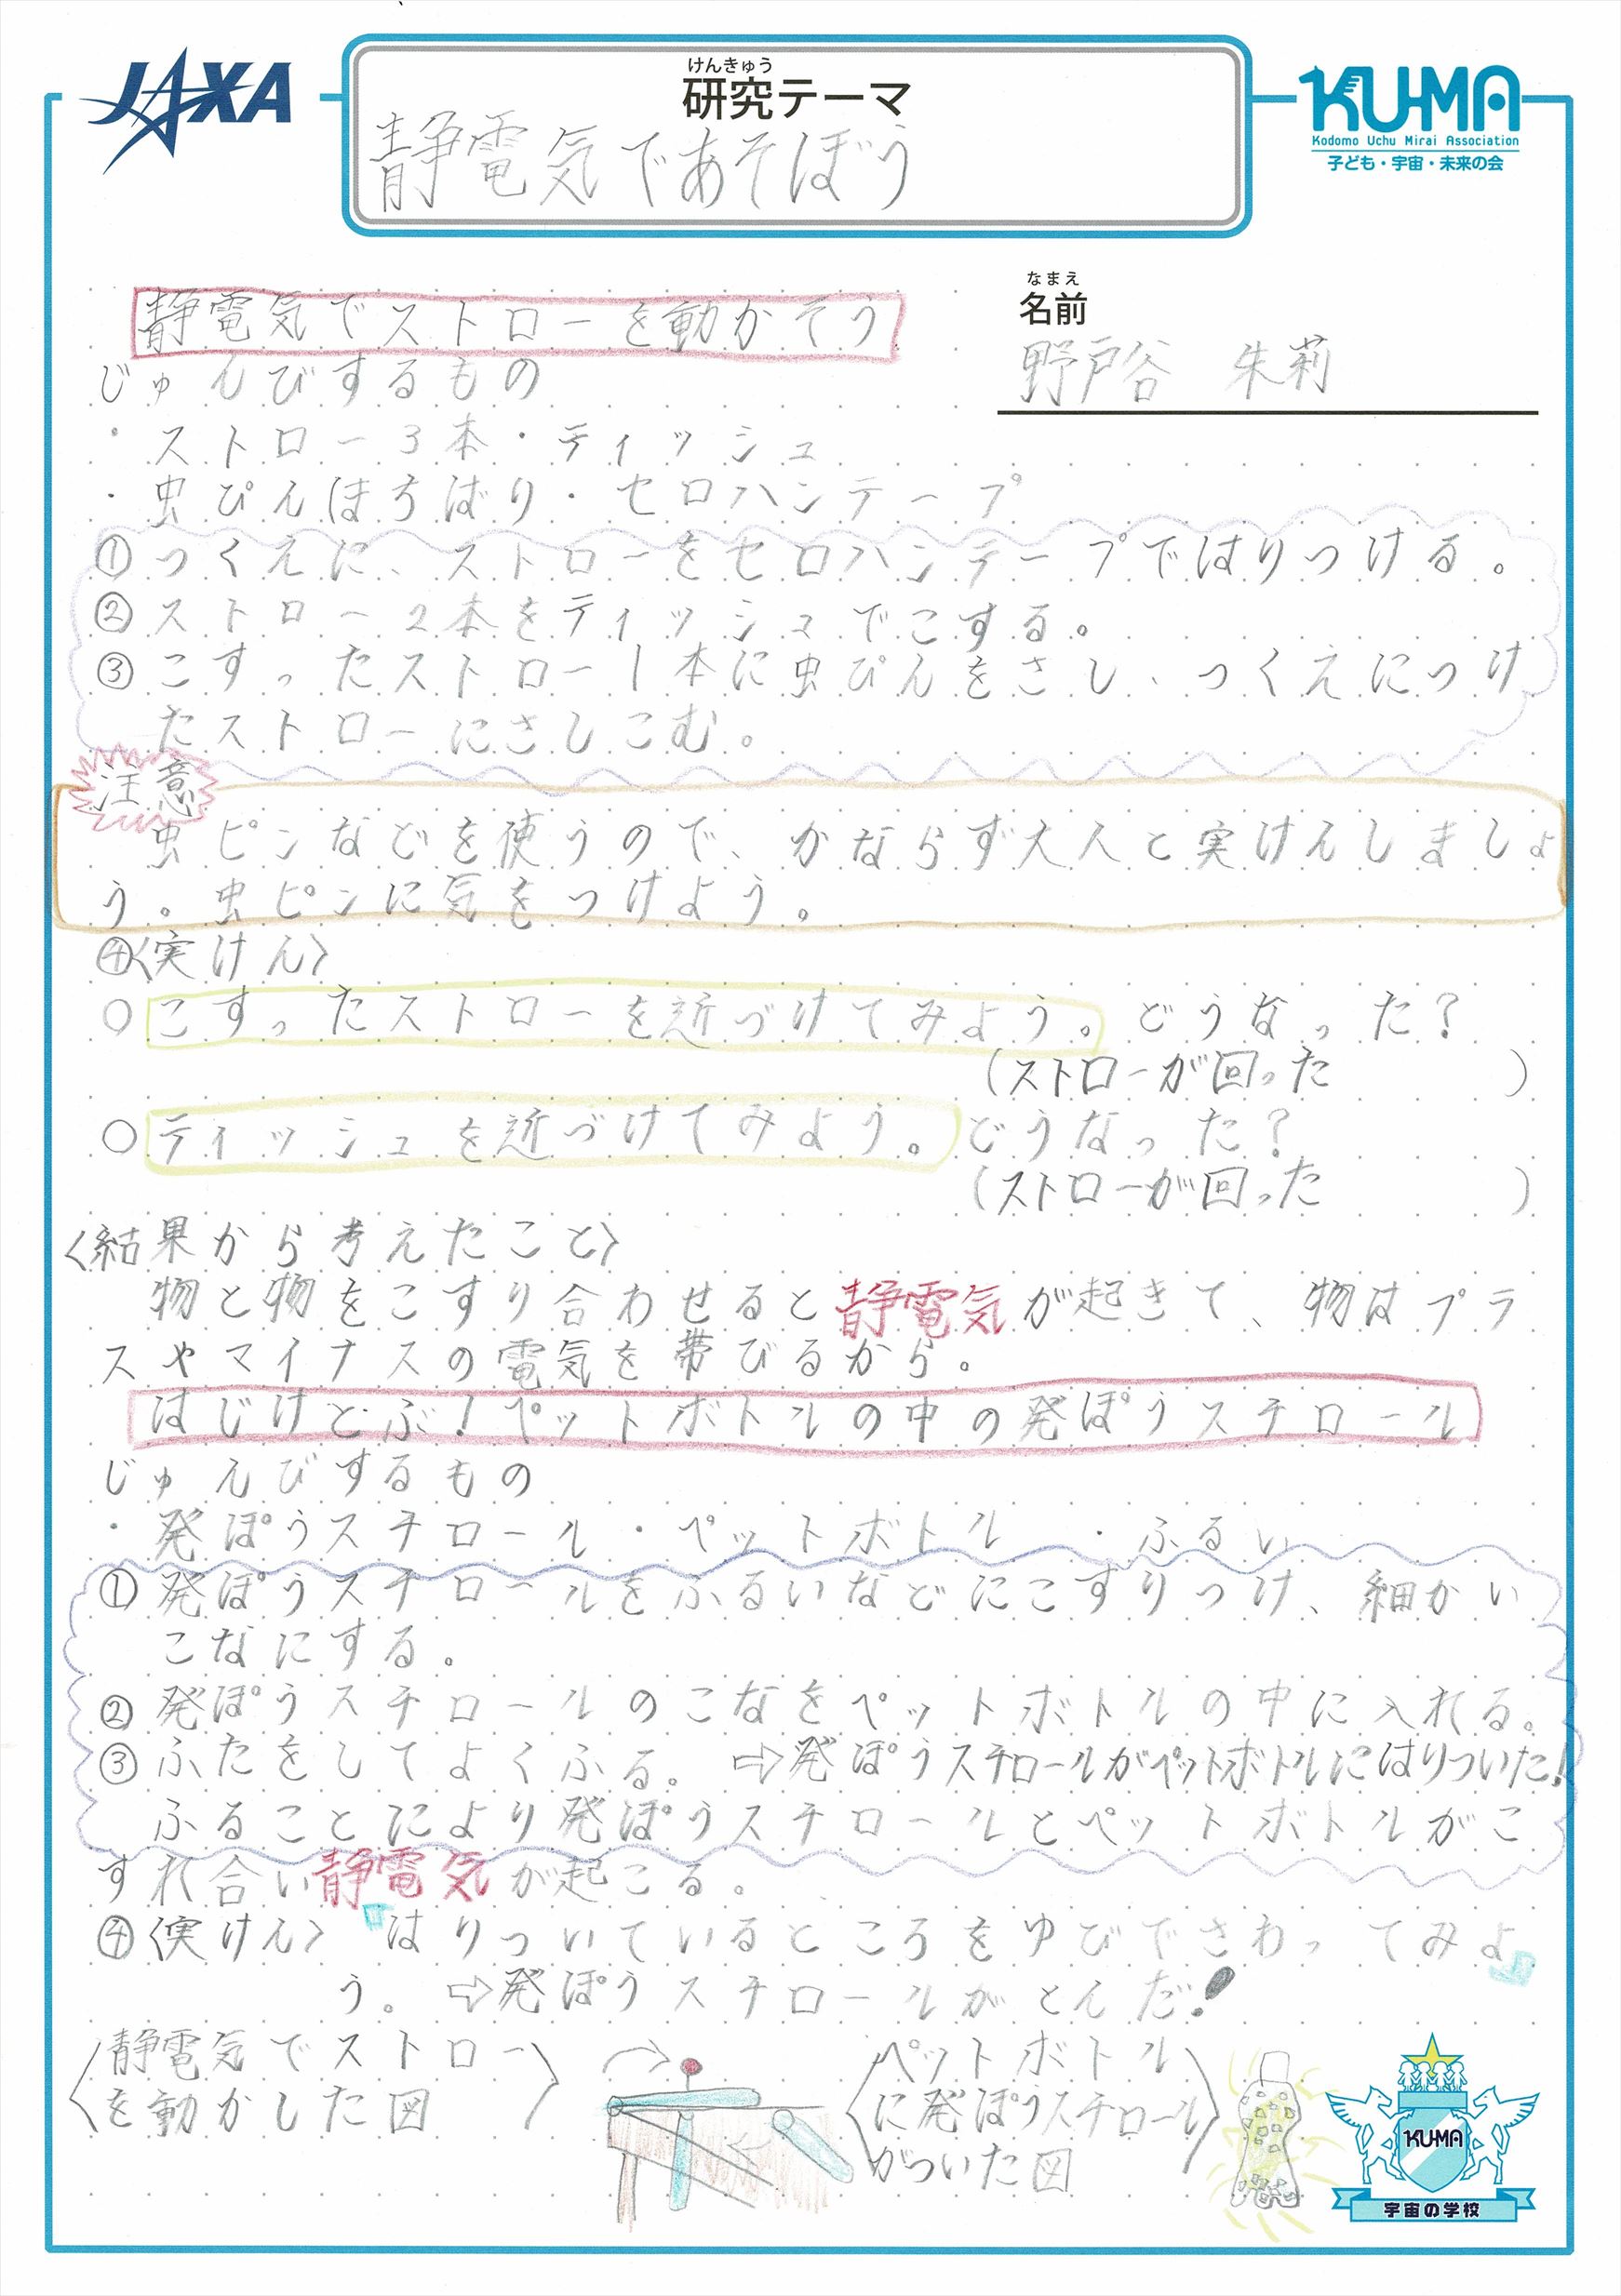 JAXA
けんきゅう
研究テーマ
静電気であそぼう
KU-MA
Kodomo Uchu Mirai Association
子ども・宇宙・未来の会
静電気でストローを動かそう
なまえ
名前
野戸谷 朱莉
じゅんびするもの
・ストロー3本・ティッシュ
・虫ぴんほちばり・セロハンテープ
①つくえに、ストローをセロハンテープではりつける。
②ストロー2本をティッシュでこする。
③こすったストロー1本に虫ぴんをさし、つくえにつけ
たストローにさしこむ。
注意
虫ピンなどを使うので、かならず大人と実けんしましょ
う。虫ピンに気をつけよう。
④〈実けん〉
○こすったストローを近づけてみよう。どうなった?
(ストローが回った)
○ティッシュを近づけてみよう。どうなった?
(ストローが回った)
〈結果から考えたこと〉
物と物をこすり合わせると静電気が起きて、物はプラ
スやマイナスの電気を帯びるから。
はじけとぶ!ペットボトルの中の発ぽうスチロール
じゅんびするもの
・発ぽうスチロール・ペットボトル ・ふるい
①発ぽうスチロールをふるいなどにこすりつけ、細かい
こなにする。
②発ぽうスチロールのこなをペットボトルの中に入れる。
③ふたをしてよくふる。⇨発ぽうスチロールがペットボトルにはりついた!
ふることにより発ぽうスチロールとペットボトルがこ
すれ合い静電気が起こる。
④〈実けん〉「はりついているところをゆびでさわってみよ」
う。⇨発ぽうスチロールがとんだ!
〈静電気でストロー
を動かした図〉
〈ペットボトル
に発ぽうスチロール
がついた図〉
KU-MA
宇宙の学校